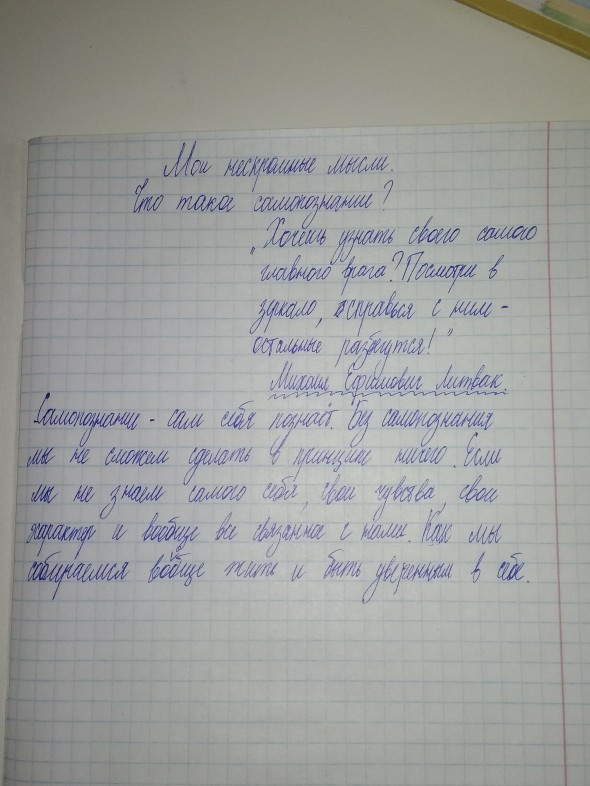 Мои нескромные мысли.
Что такое самопознание?
„Хочешь узнать своего самого
главного врага? Посмотри в
зеркало, справься с ним -
остальные разбегутся!"
Михаил Ефимович Литвак.
Самопознание - сам себя познаёт. Без самопознания
мы не сможем сделать в принципе ничего. Если
мы не знаем самого себя, свои чувства, свои
характер и вообще все связанное с нами. Как мы
собираемся вообще жить и быть уверенным в себе.